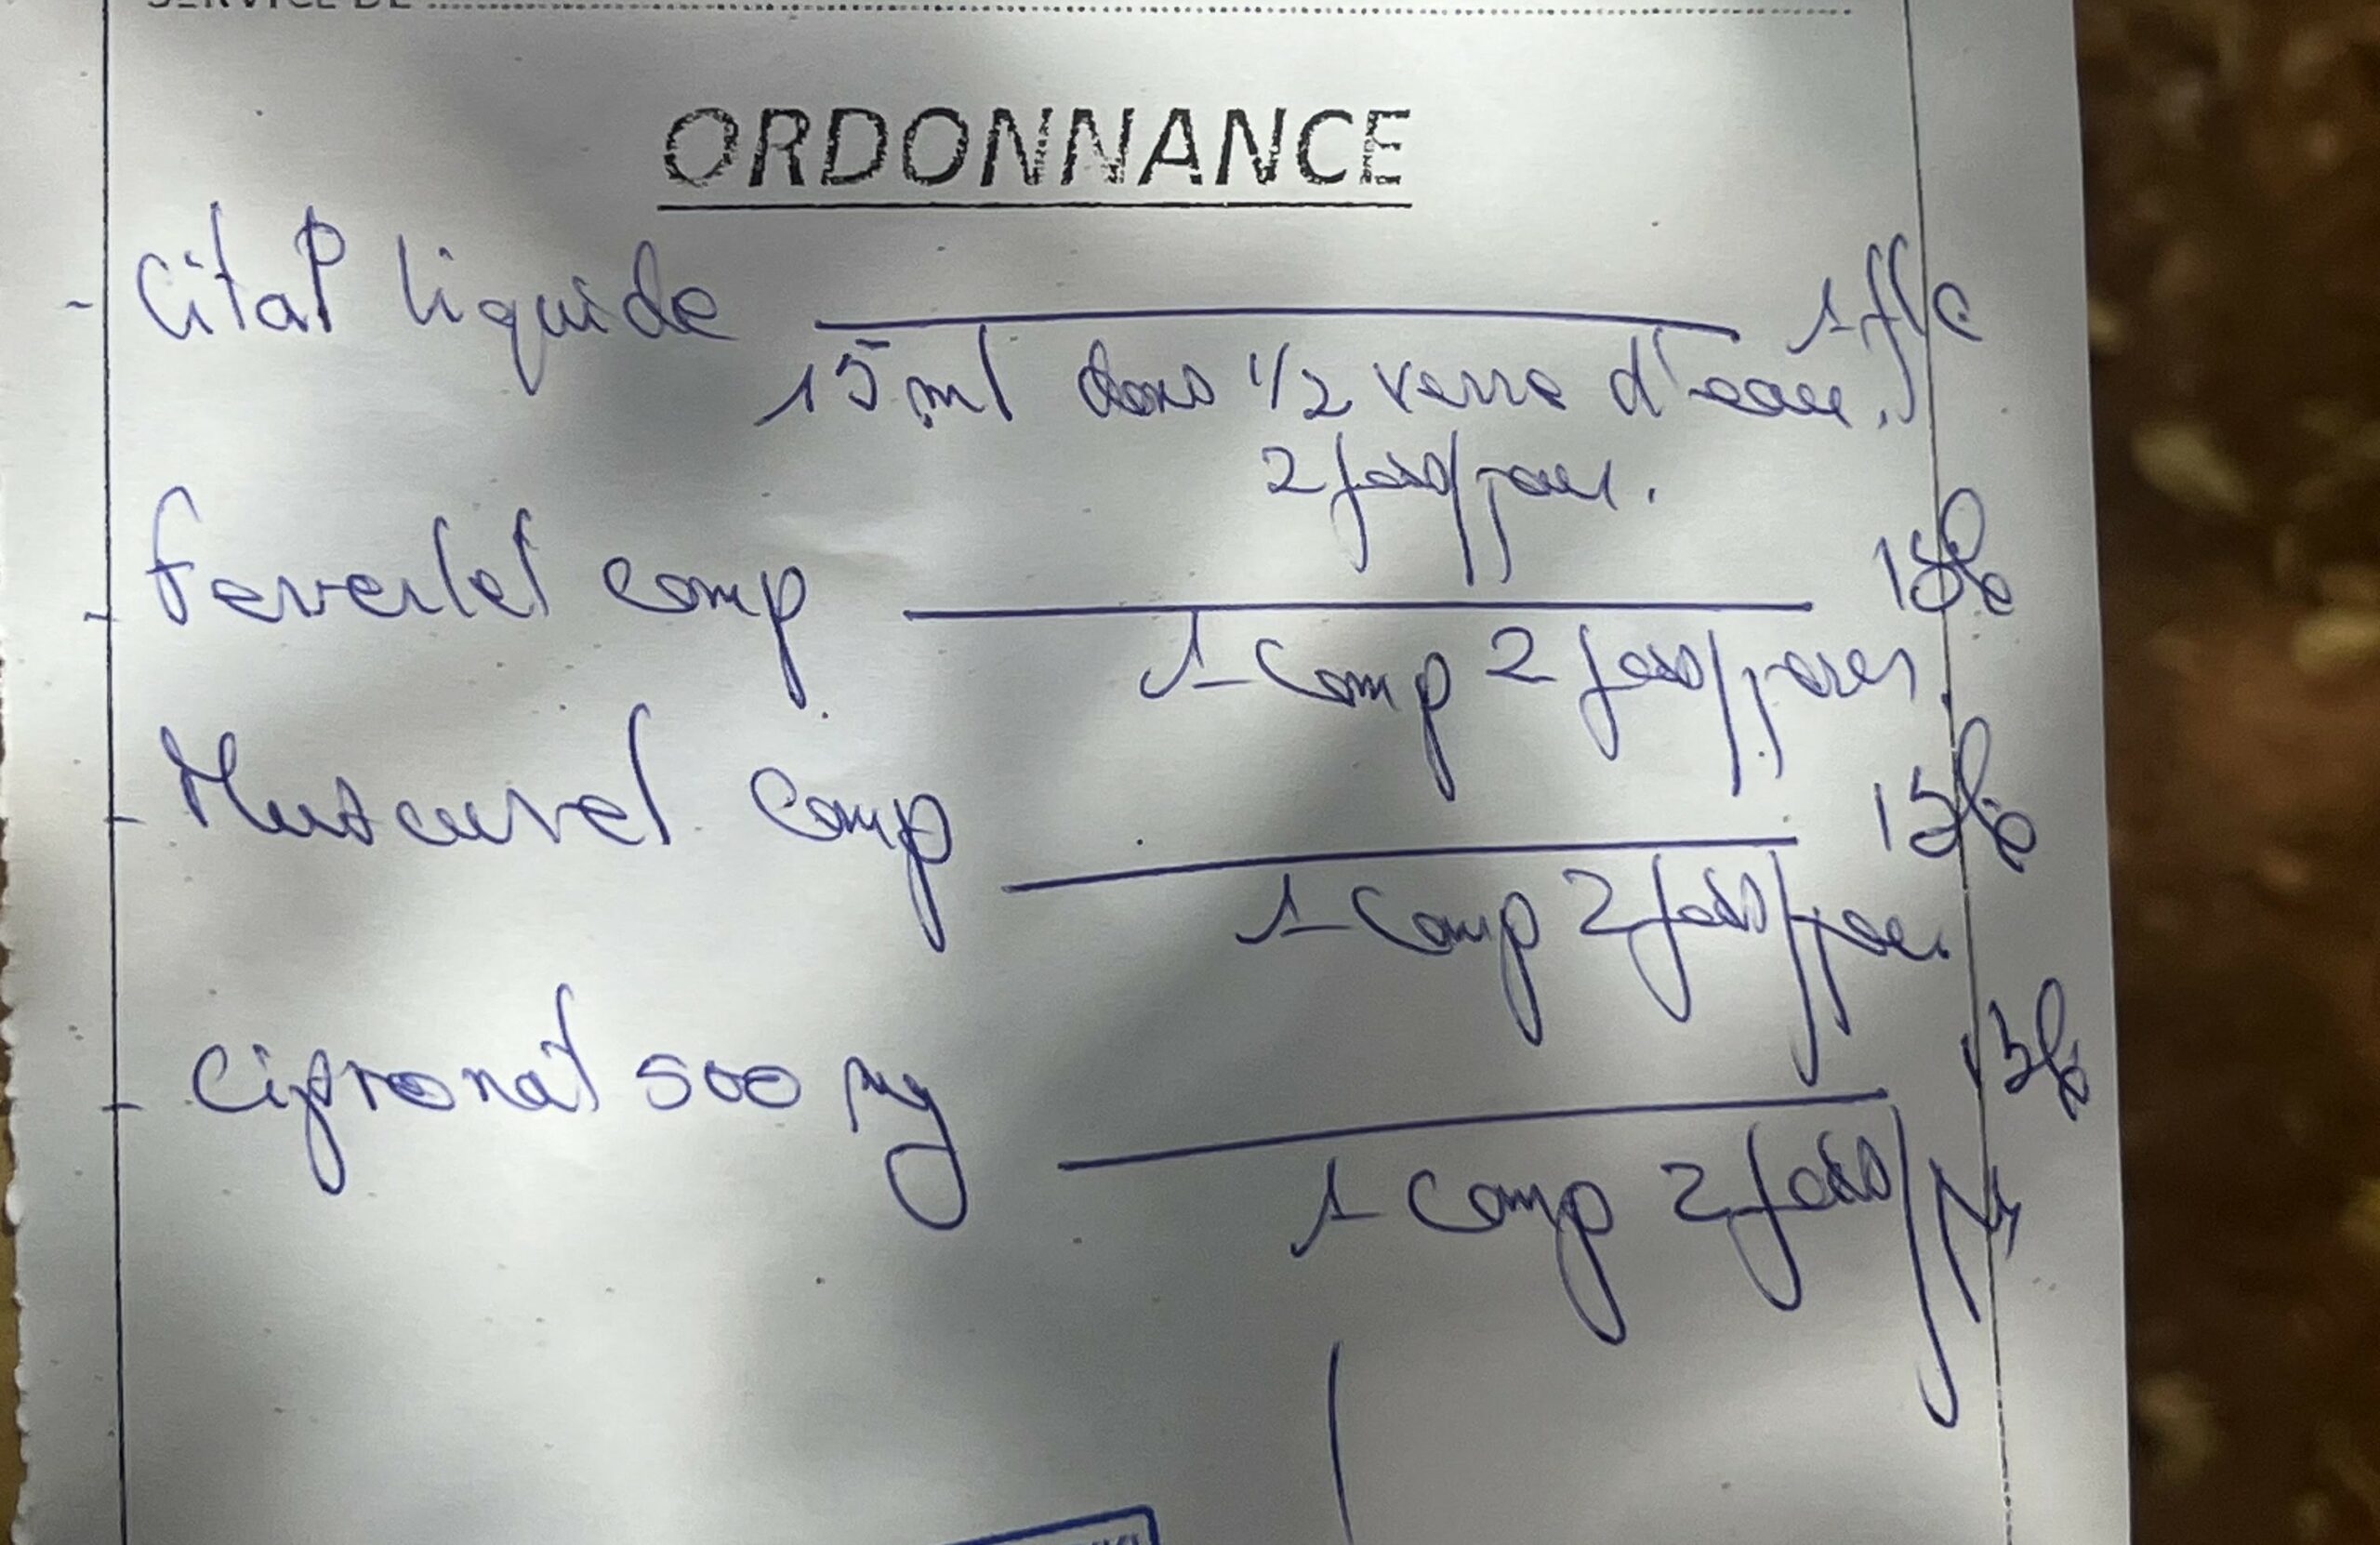 SERVICE DE
ORDONNANCE
- Cital liquide 1 fl/c
15 ml dans 1/2 verre d'eau.
2 fois/jour.
- Feverlet comp
1 comp 2 fois/jour.
- Muscurel comp
1 comp 2 fois/jour.
- Cipronat 500 mg
1 comp 2 fois/jr